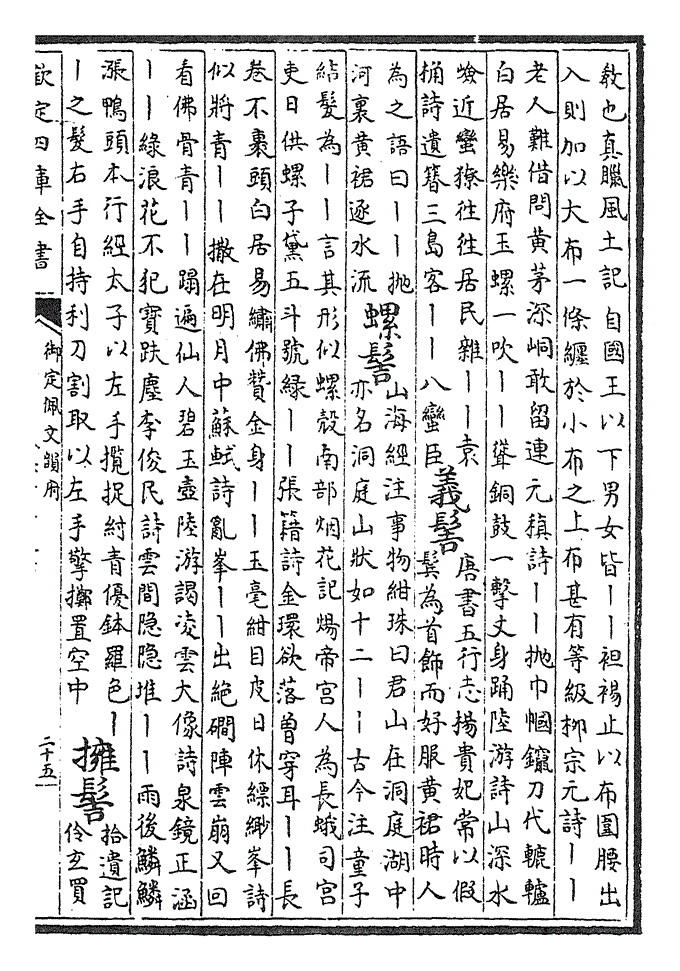 教也真臘風土記自國王以下男女皆丨丨袒裼止以布圍腰出
入則加以大布一條纏於小布之上布甚有等級栁宗元詩丨丨
老人難借問黄茅深峒敢留連元稹詩丨丨抛巾幗鑹刀代轆轤
白居易樂府玉螺一吹丨丨聳銅鼓一擊文身踊陸游詩山深水
嶮近蠻獠徃徃居民雜丨丨袁桷詩遺簪三島客丨丨八蠻臣
義髻
唐書五行志楊貴妃常以假鬓為首飾而好服黄裙時人
為之語曰丨丨抛河裏黄裙逐水流
螺髻
山海經注事物紺珠曰君山在洞庭湖中亦名洞庭山狀如十二丨丨古今注童子
結髮為丨丨言其形似螺殻南部烟花記煬帝宫人為長蛾司宫
吏日供螺子黛五斗號緑丨丨張籍詩金環欲落曽穿耳丨丨長
巻不裹頭白居易繡佛贊金身丨丨玉毫紺目皮日休縹緲峯詩
似將青丨丨撒在明月中蘇軾詩亂峯丨丨出絶磵陣雲崩又回
看佛骨青丨丨蹋遍仙人碧玉壺陸游謁凌雲大像詩泉鏡正涵
丨丨緑浪花不犯寳趺塵李俊民詩雲間隐隐堆丨丨雨後鱗鱗
漲鴨頭本行經太子以左手攬捉紺青優鉢羅色丨
丨之髮右手自持利刀割取以左手擎擲置空中
擁髻
拾遺記
伶玄買
欽定四庫全書
御定佩文韻府
二十五